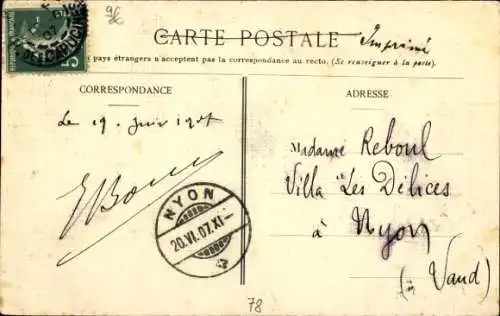 9€
CARTE POSTALE
Imprimé
pays étrangers n'acceptent pas la correspondance au recto. (Se renseigner à la poste).
CORRESPONDANCE
ADRESSE
Le 19. Juin 1907
Madame Reboul
Villa Les Délices
à Nyon
(Vaud)
NYON
20.VI.07.XI-
78